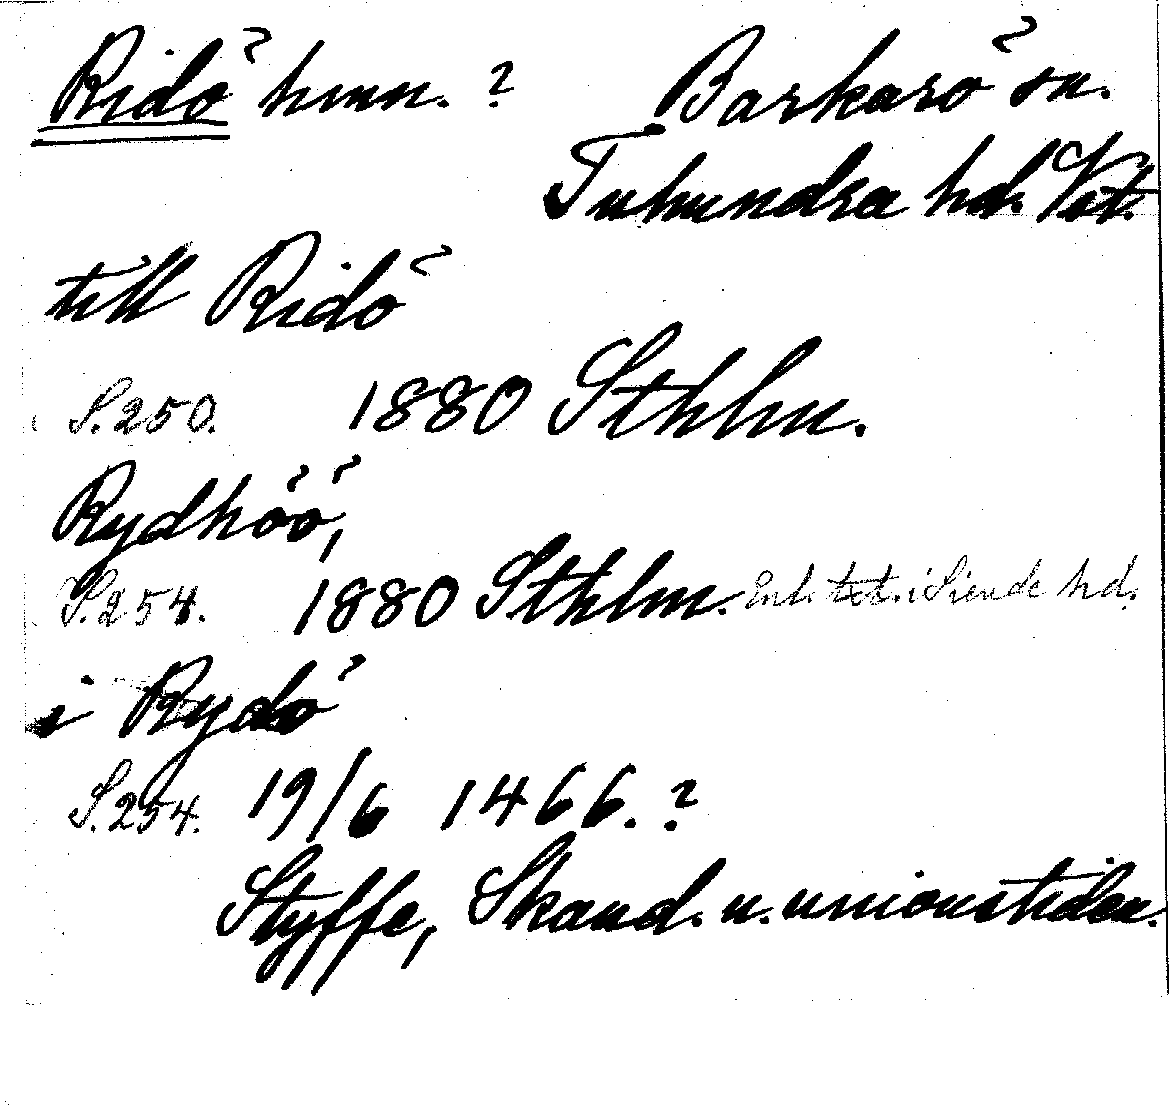 Ridö hmn. ? Barkarö sn.
Tuhundra hd. Vst.
till Ridö
S. 250. 1880 Sthlm.
Rydhöö,
S. 254. 1880 Sthlm. Enl. txt. i Siende hd.
i Rydö
S. 254. 19/6 1466. ?
Styffe, Skand. u. unionstiden.